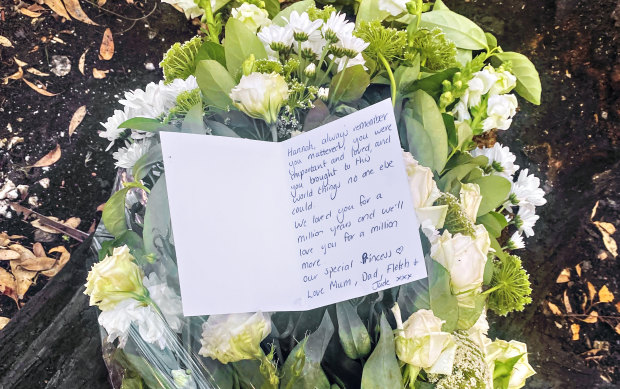 Hannah, always remember
you mattered, you were
important and loved, and
you brought to this
world things no one else
could.
We loved you for a
million years and we'll
love you for a million
more
our special Princess ♡
Love Mum, Dad, Fletch +
Jade xxx